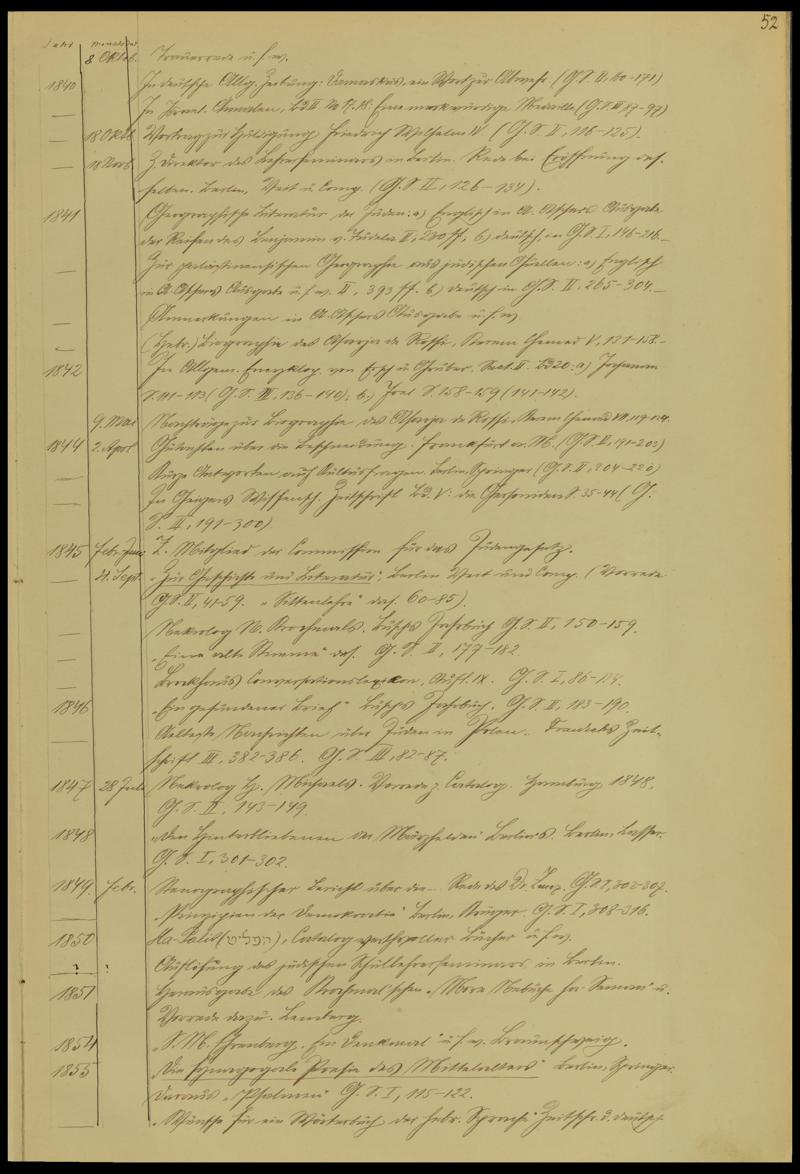 52
Jahr Monatstag
8. Oktob. Trauerrede u. s. w.
1840 In deutsche Allg. Zeitung: Damaskus, ein Wort zur Abwehr (G. S. II, 160-171)
— In Israel. Annalen, Bd II No Eine merkwürdige Medaille (G. S. III 87-97)
— 18 Okt. Vortrag zur Huldigung Friedrich Wilhelm IV (G. S. II, 116-125).
— 18 Novb. Z. Direktor des Lehrerseminars in Berlin. Rede bei Eröffnung des-
selben. Berlin, Veit u. Comp. (G. S. II, 126-134).
1841 Geographische Literatur der Juden: a) Englisch in A. Ashers Ausgabe
der Reisen des Benjamin v. Tudela II, 230 ff, b) deutsch in G. S. I, 146-216.—
— Zur palästinensischen Geographie aus jüdischen Quellen: a) Englisch
in A. Ashers Ausgabe u. s. w. II, 393 ff. b) deutsch in G. S. II, 265-304.—
— Anmerkungen in A. Ashers Ausgabe u. s. w.
— (Hebr.) Biographie des Asarja de Rossi, Kerem Chemed V, 131-158.—
1842 In Allgem. Enzyklop. von Ersch u. Gruber. Sect. II. Bd 20: a)
S. 111-113 (G. S. III, 136-140); b) Joel S. 158-159 (141-142).
9. Mai Nachträge zur Biographie des Asarja de Rossi, Kerem Chemed VII, 119-124.
1844 2. April Gutachten über die Beschneidung. Frankfurt a. M. (G. S. II, 191-203)
— Kurze Antworten auf Kultusfragen. Berlin, Springer (G. S. II, 204-220)
— In Geigers Wissensch. Zeitschrift Bd. V: die Gersoniden S. 35-44 (G.
S. III, 191-300).
1845 Febr. Juni Z. Mitglied der Commission für das Judengesetz.
— 21. Sept. „Zur Geschichte und Literatur". Berlin Veit und Comp. (Vorrede
G. S. II, 41-59. „Sittenlehre" das. 60-85).
— Nekrolog N. Krochmals. Busch's Jahrbuch G. S. II, 150-159.
— „Eine alte Stimme" das. G. S. II, 177-182.
— Brockhaus Conversationslexikon, Aufl. IX. G. S. I, 86-
1846 „Ein gefundener Brief" Busch's Jahrbuch. G. S. II, 183-190.
— Aelteste Nachrichten über Juden in Polen. Zeit-
schrift III, 382-386. G. S. III, 82-87.
1847 28 Juli Nekrolog H. Michaels. Vorrede z. Catalog. Hamburg 1848.
G. S. II, 143-149.
1848 „Den Hinterbliebenen der Märzhelden Berlin's. Berlin, Lassar.
G. S. I, 301-302.
1849. Febr. Stenographischer Bericht über die — Rede des Dr. Zunz. G. S. I, 302-307.
— „Prinzipien der Demokratie" Berlin, Krüger. G. S. I, 308-316.
1850 Ha-Palit (הפליט), Catalog werthvoller Bücher u. s. w.
? ? Auflösung des jüdischen Schullehrerseminars in Berlin.
1851 Herausgabe des Krochmal'schen „More Nebuche ha-Seman" u.
Vorrede dazu. Lemberg.
1854 „S. M. Ehrenberg. Ein Denkmal" u. s. w. Braunschweig.
1855 „Die synagogale Poesie des Mittelalters" Berlin, Springer.
— Daraus „Psalmen" G. S. I, 115-122.
— „Wünsche für ein Wörterbuch der hebr. Sprache" Zeitschr. d. deutsch